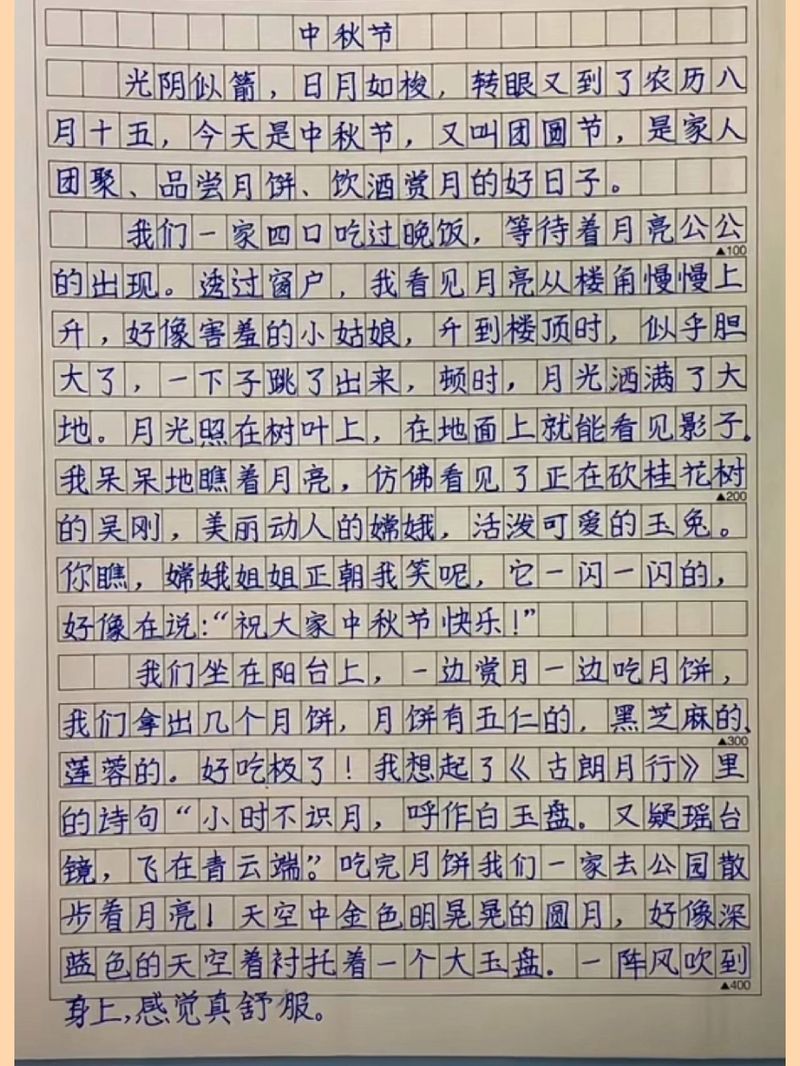 中秋节
光阴似箭，日月如梭，转眼又到了农历八
月十五，今天是中秋节，又叫团圆节，是家人
团聚、品尝月饼、饮酒赏月的好日子。
我们一家四口吃过晚饭，等待着月亮公公
▲100
的出现。透过窗户，我看见月亮从楼角慢慢上
升，好像害羞的小姑娘，升到楼顶时，似乎胆
大了，一下子跳了出来，顿时，月光洒满了大
地。月光照在树叶上，在地面上就能看见影子.
我呆呆地瞧着月亮，仿佛看见了正在砍桂花树
▲200
的吴刚，美丽动人的嫦娥，活泼可爱的玉兔。
你瞧，嫦娥姐姐正朝我笑呢，它一闪一闪的，
好像在说:“祝大家中秋节快乐!”
我们坐在阳台上，一边赏月一边吃月饼，
我们拿出几个月饼，月饼有五仁的，黑芝麻的、
▲300
莲蓉的。好吃极了！我想起了《古朗月行》里
的诗句“小时不识月，呼作白玉盘。又疑瑶台
镜，飞在青云端”。吃完月饼我们一家去公园散
步看月亮！天空中金色明晃晃的圆月，好像深
蓝色的天空着衬托着一个大玉盘.一阵风吹到
▲400
身上,感觉真舒服。